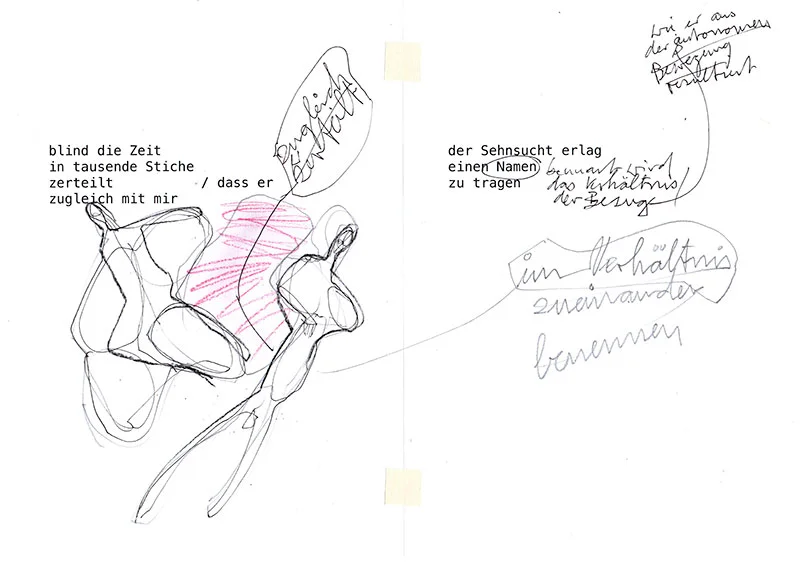 blind die Zeit
in tausende Stiche
zerteilt / dass er
zugleich mit mir
zugleich
der Sehnsucht erlag
einen Namen
zu tragen
benannt wird
das Verhältnis
der Bezug
wie er aus
der autonomen
Bewegung
resultiert
im Verhältnis
zueinander
benennen